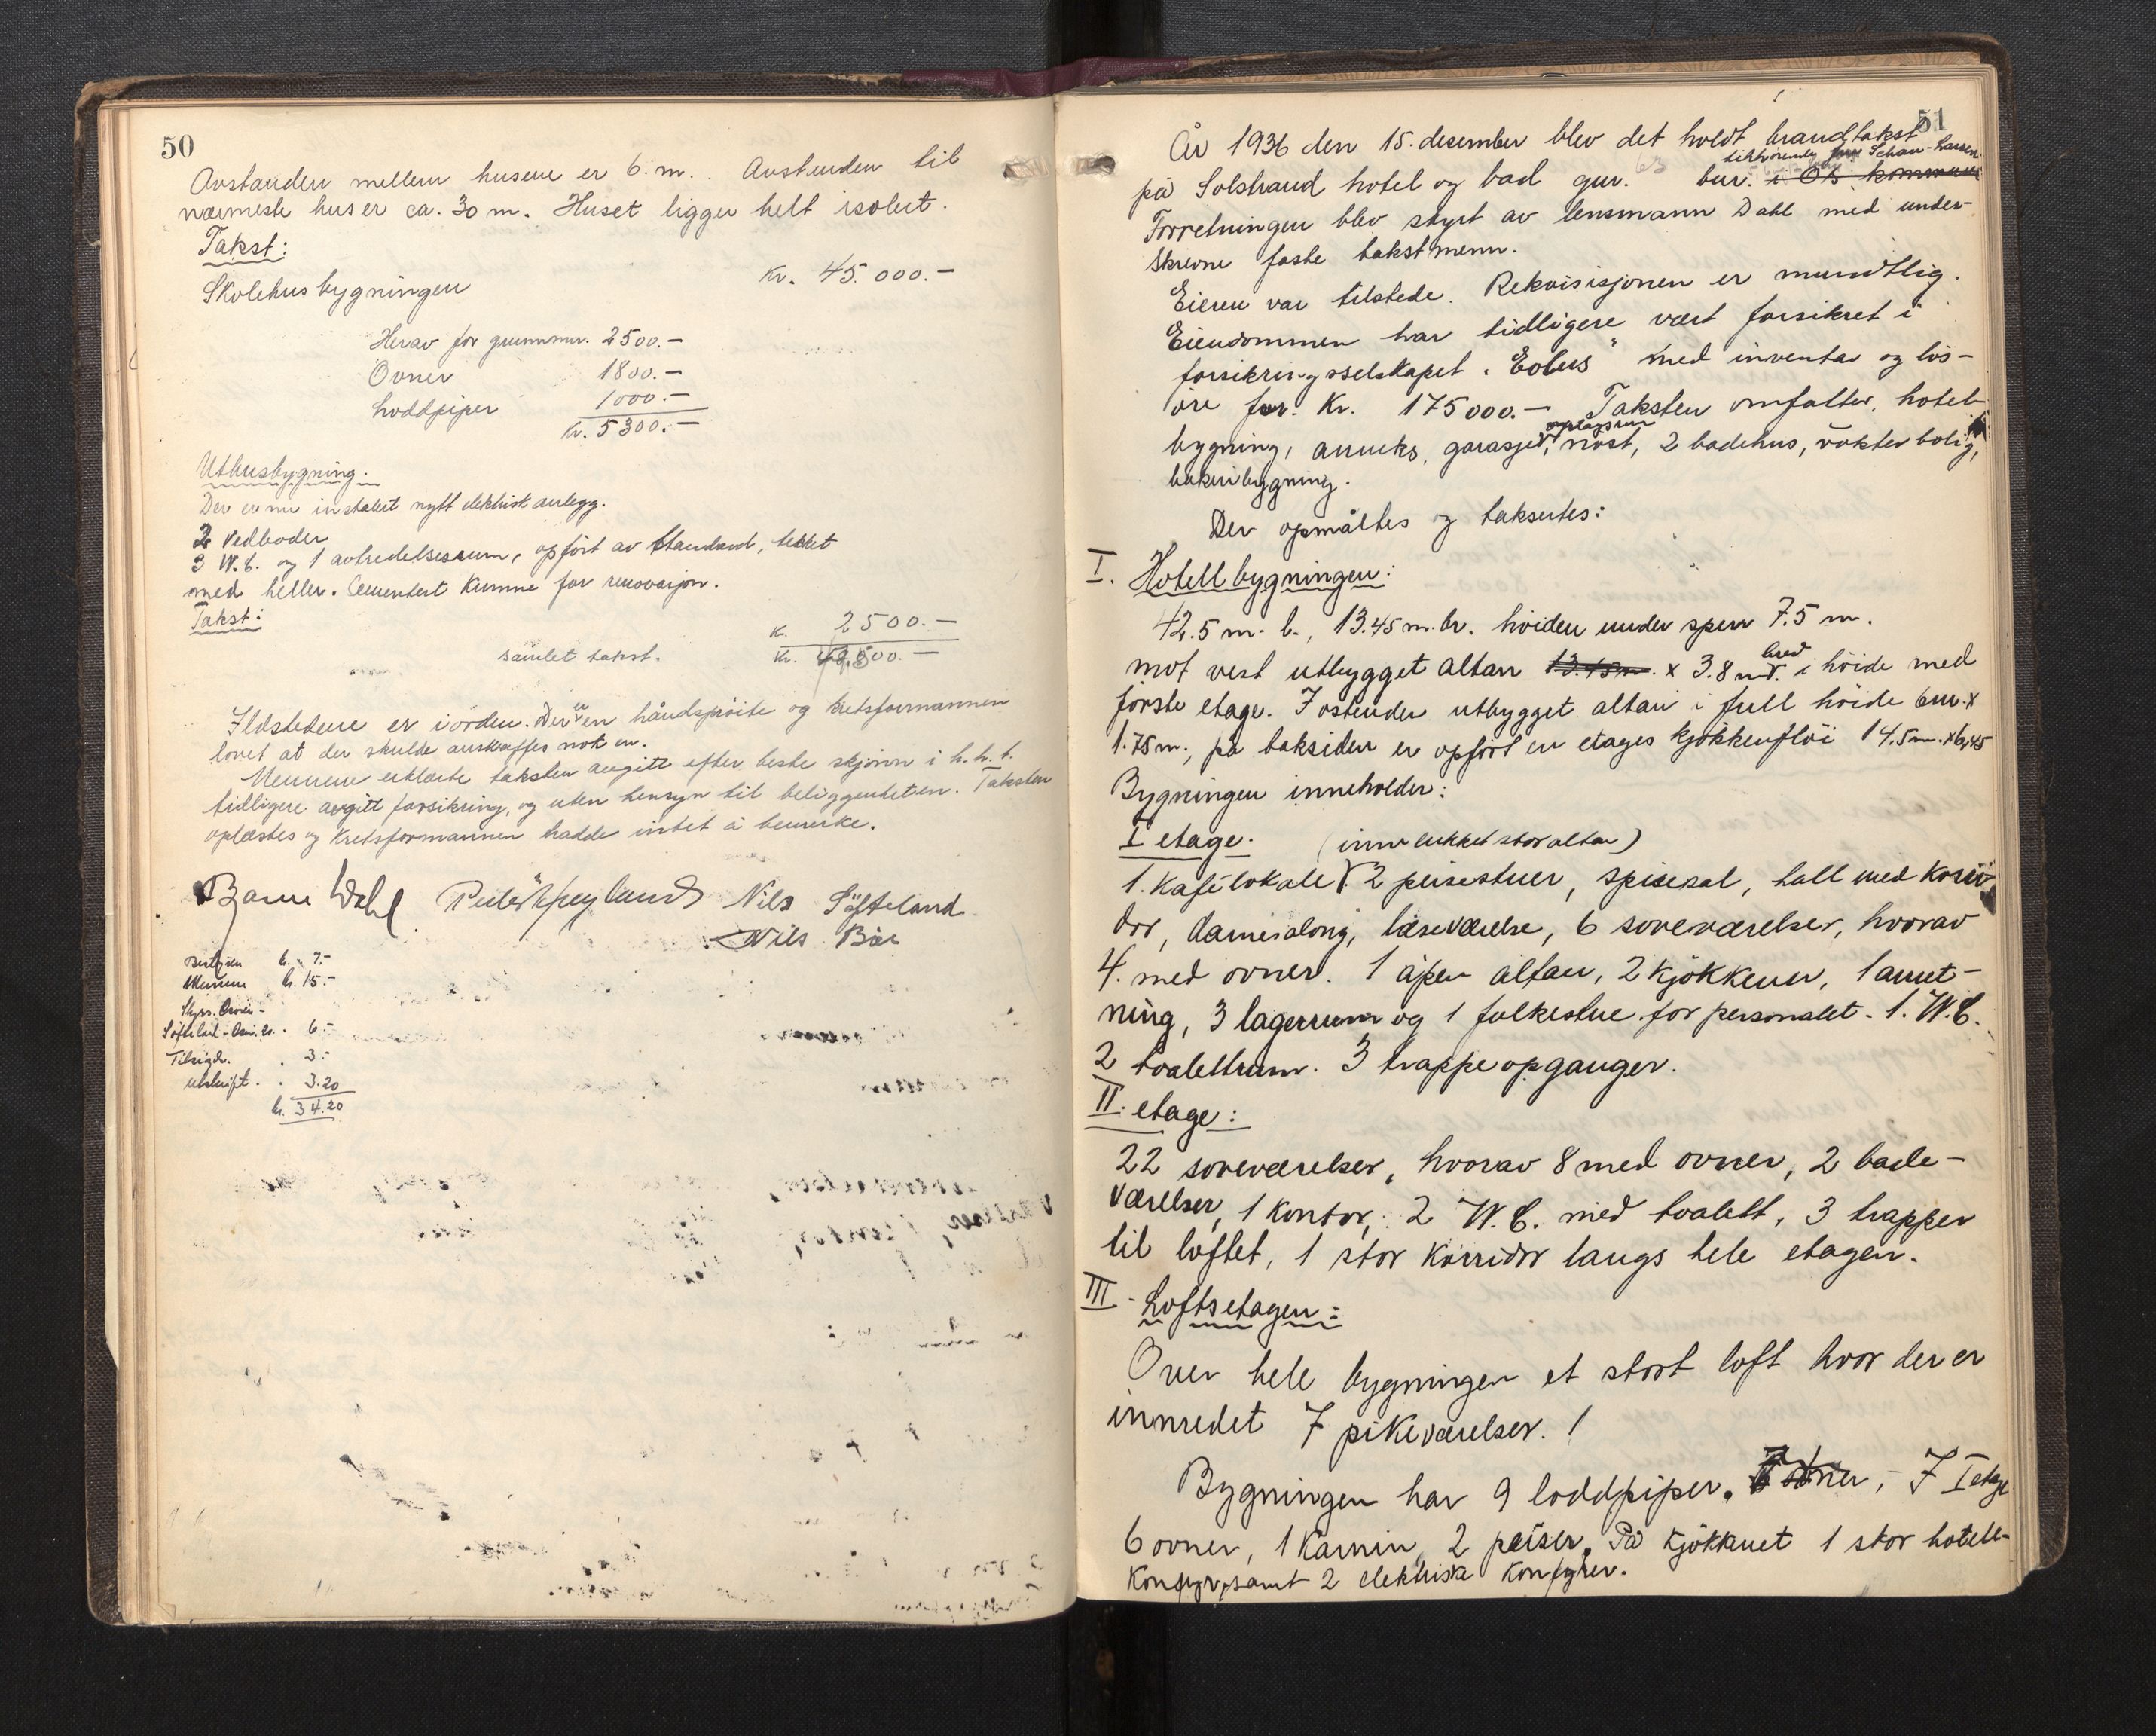 50
Avstanden mellem husene er 6. m. . Avstanden til
nærmeste hus er ca. 30 m. Huset ligger helt isolert.
Takst:
Skolehusbygningen Kr. 45.000.-
Herav for grunnmur. 2500.-
Ovner 1800.-
Loddpiper 1000.-
Kr. 5300.-
Uthusbygning.
Der er nu instalert nytt elektrisk anlegg.
2 vedboder
3 W.C. og 1 avtredelsesrum, opført av standard, tekket
med heller. Cementert kumme for renovasjon.
Takst:
Kr. 2500.-
samlet takst. Kr. 500.-
Ildstedene er i orden. Der er en håndsprøite og kretsformannen
lovet at der skulde anskaffes nok en.
Mennene erklærte taksten avgitt efter beste skjønn i h. h. t.
tidligere avgitt forsikring, og uten hensyn til beliggenheten. Taksten
oplæstes og kretsformannen hadde intet å bemerke.
Nils Söfteland
Nils Böe
7.-
Mennene kr. 15.-
Skyss.
6.-
3.-
utskrift. 3.20
kr. 34.20
51
År 1936 den 15. desember blev det holdt brandtakst
tilhørende Schau-Larsen
på Solstrand hotel og bad gnr. 63 bnr. i Os kommune
Forretningen blev styrt av lensmann Dahl med under-
skrevne faste takstmenn.
Eieren var tilstede. Rekvisisjonen er mundtlig.
Eiendommen har tidligere vært forsikret i
forsikringsselskapet "Eolus" med inventar og løs-
øre for. Kr. 175000.- Taksten omfatter, hotel-
bygning, anneks, garasje, nøst, 2 badehus, vokterbolig,
bakeribygning.
Der opmåltes og taksertes:
I. Hotellbygningen:
42.5 m. l., 13.45 m. br. høiden under sperr 7.5 m.
bred
mot vest utbygget altan 13.45 m. x 3.8 m. i høide med
første etage. I østenden utbygget altan i full høide 6m. x
1.75 m., på baksiden er opført en etages kjøkkenfløi 14.5 m. x 6,45
Bygningen inneholder:
I etage. (innelukket stor altan)
1. Kafélokale 2 peisestuer, spisesal, hall med korri-
dor, damesalong, læseværelse, 6 soveværelser, hvorav
4. med ovner. 1 åpen altan, 2 kjøkkener, 1 anret-
ning, 3 lagerrum og 1 folkestue for personalet. 1. W.C.
2 toalettrum. 3 trappeopganger.
II. etage:
22 soveværelser, hvorav 8 med ovner, 2 bade-
værelser, 1 kontor, 2 W.C. med toalett, 3 trapper
til loftet, 1 stor korridor langs hele etagen.
III. Loftsetagen:
Over hele bygningen et stort loft hvor der er
innredet 7 pikeværelser. 1
Bygningen har 9 loddpiper. ovner, - I I etage
6 ovner, 1 kamin, 2 peiser, På kjøkkenet 1 stor hotell-
komfyr, samt 2 elektriske komfyrer.